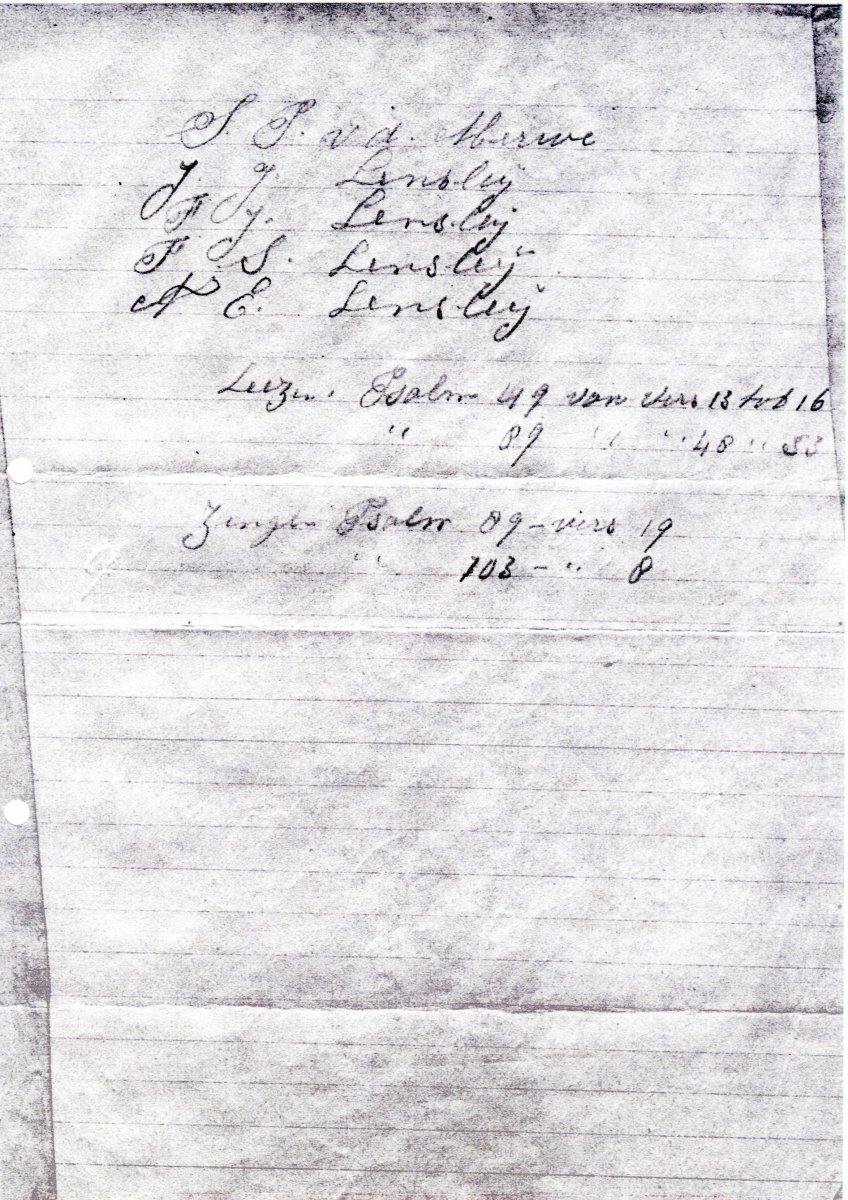 S. P. v d. Merwe
J. J. Lensleÿ
F J. Lensleÿ
F. S. Lensleÿ
N E. Lensleÿ
Leezen. Psalm 49 van vers 13 tot 16
" 89 " " 48 " 53
Zingen Psalm 89 - vers 19
" 103 - " 8